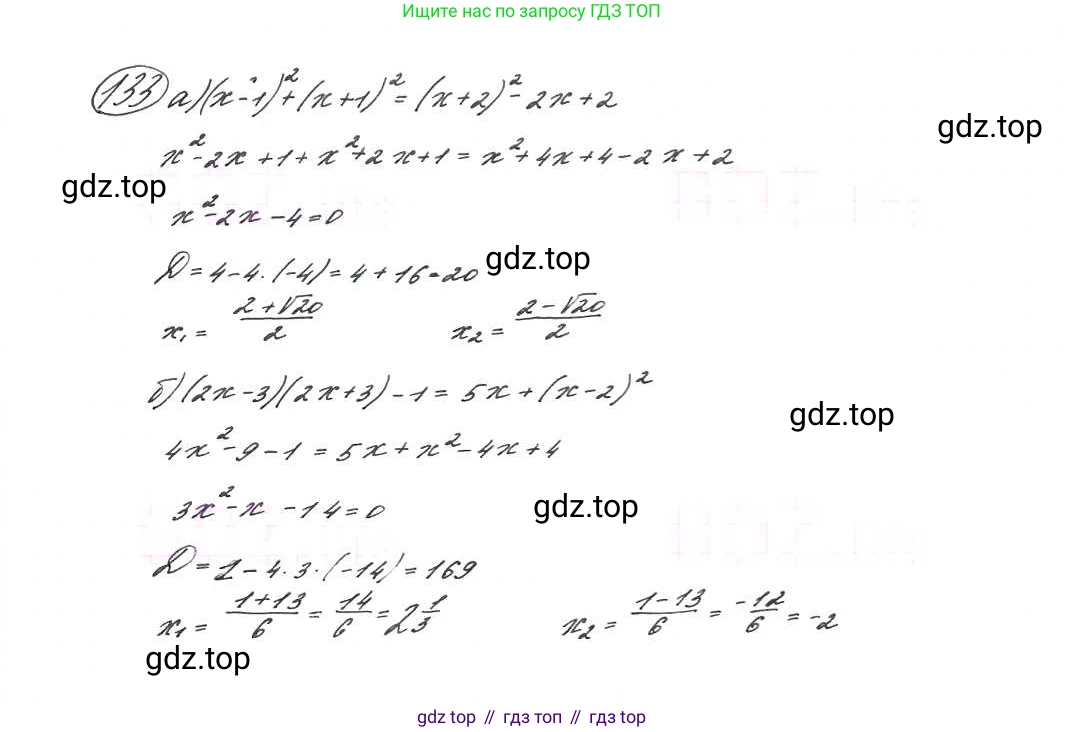 Ищите нас по запросу ГДЗ ТОП
133 а) (x-1)² + (x+1)² = (x+2)² - 2x + 2
gdz.top
x² - 2x + 1 + x² + 2x + 1 = x² + 4x + 4 - 2x + 2
gdz.top
x² - 2x - 4 = 0
D = 4 - 4·(-4) = 4 + 16 = 20
gdz.top
x₁ = (2+√20)/2 x₂ = (2-√20)/2
б) (2x-3)(2x+3) - 1 = 5x + (x-2)²
gdz.top
4x² - 9 - 1 = 5x + x² - 4x + 4
3x² - x - 14 = 0
gdz.top
D = 1 - 4·3·(-14) = 169
x₁ = (1+13)/6 = 14/6 = 2 1/3 x₂ = (1-13)/6 = -12/6 = -2
gdz.top
gdz top // гдз топ // gdz top